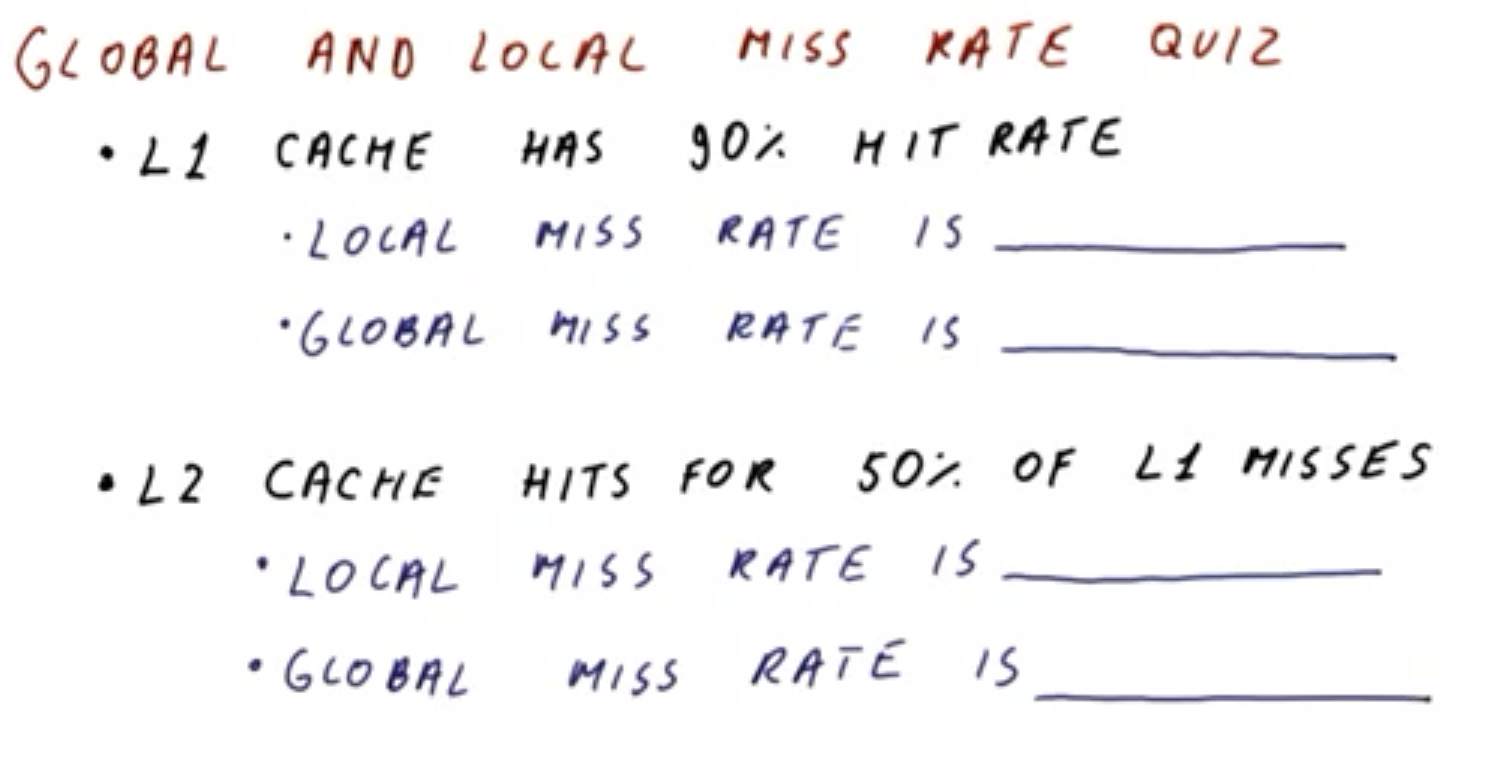 GLOBAL AND LOCAL MISS RATE QUIZ
• L1 CACHE HAS 90% HIT RATE
• LOCAL MISS RATE IS ________
• GLOBAL MISS RATE IS ________
• L2 CACHE HITS FOR 50% OF L1 MISSES
• LOCAL MISS RATE IS ________
• GLOBAL MISS RATE IS ________